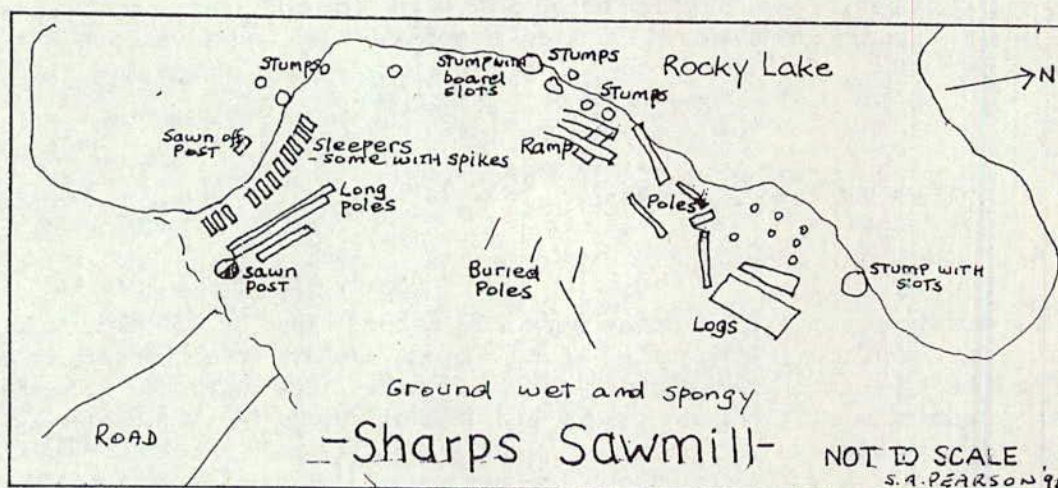 Stumps
Stump with
board
slots
Stumps
Rocky Lake
N
Stumps
Sawn off
Post
Sleepers
- some with spikes
Ramp
Long
poles
Poles
Sawn
Post
Buried
Poles
Stump with
slots
Logs
Ground wet and spongy
ROAD
-Sharps Sawmill-
NOT TO SCALE
S.A. PEARSON